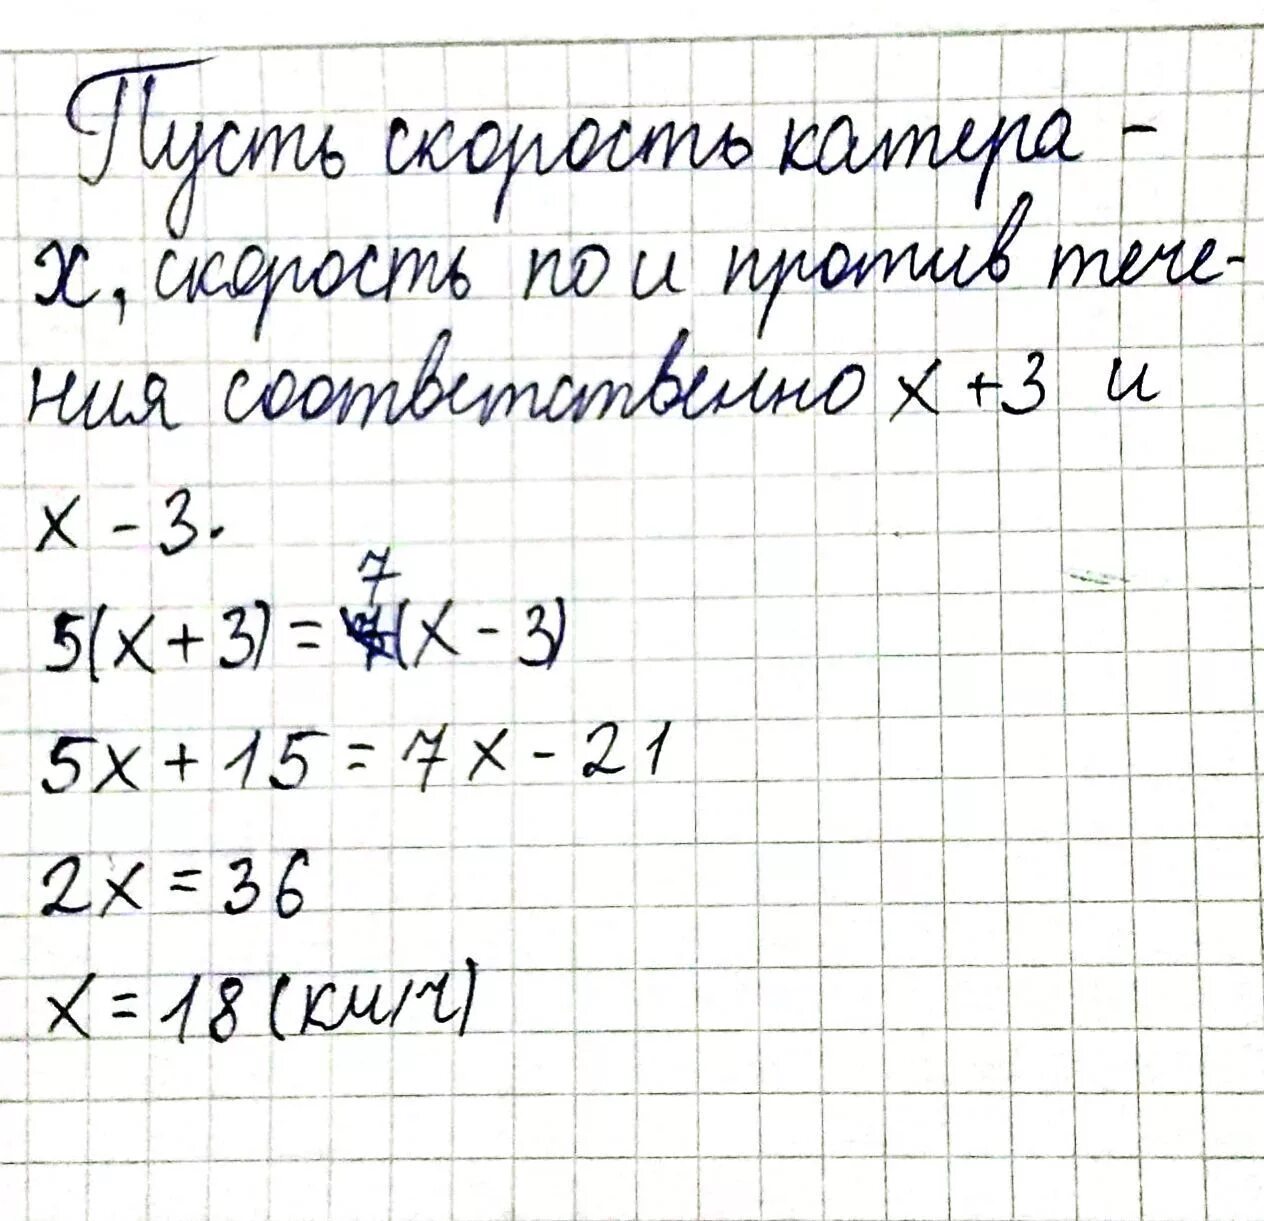 Пусть скорость катера -
х, скорость по и против тече-
ния соответственно х + 3 и
х - 3.
5(х + 3) = 7(х - 3)
5х + 15 = 7х - 21
2х = 36
х = 18 (км/ч)